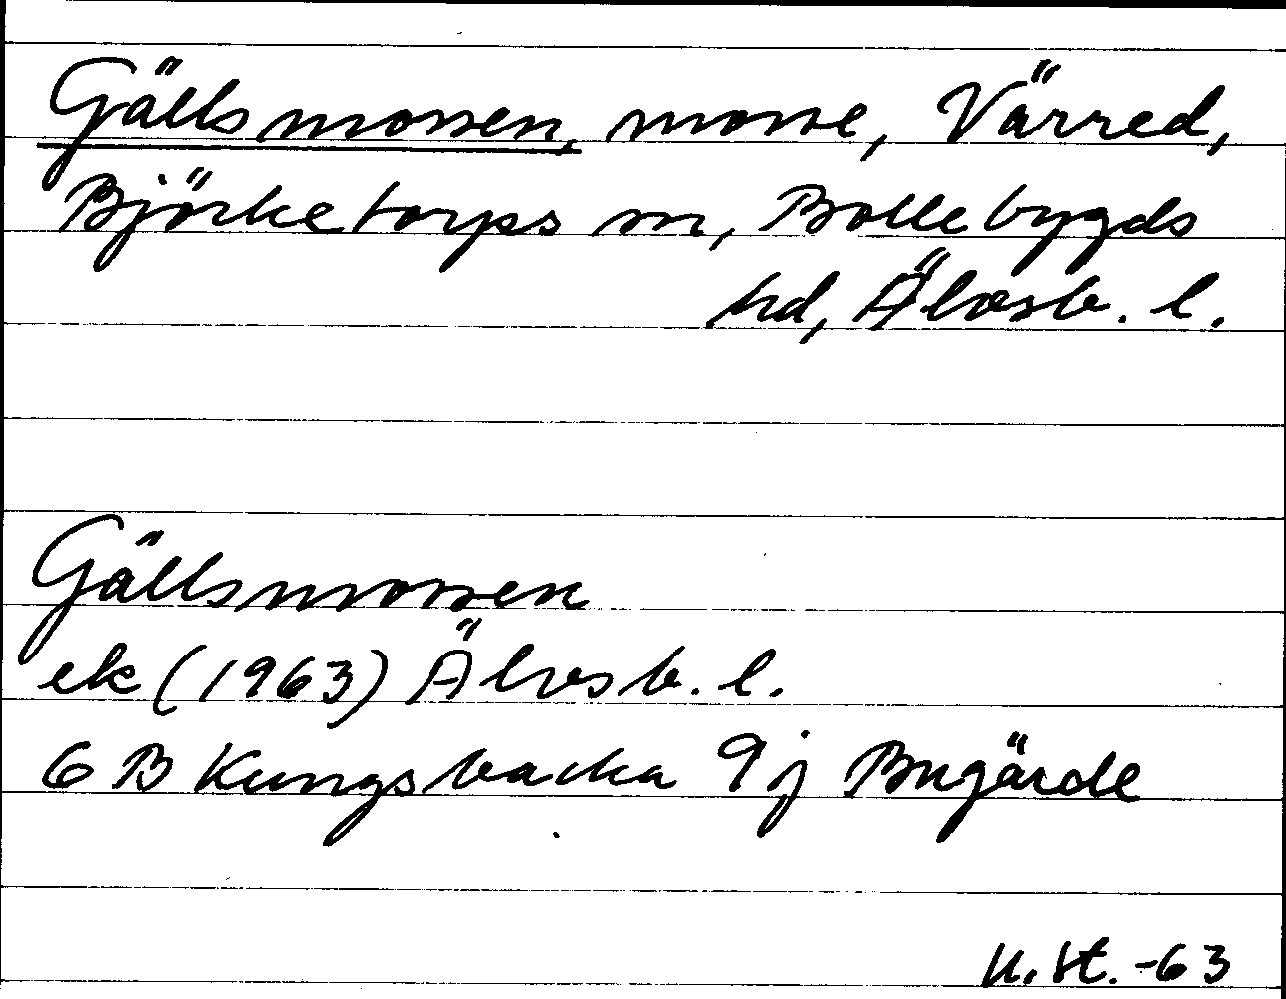 Gällsmossen, mosse, Värred,
Björketorps sn, Bollebygds
hd, Älvsb. l.
Gällsmossen
ek (1963) Älvsb. l.
6 B Kungsbacka 9j Bugärde
U. St. -63